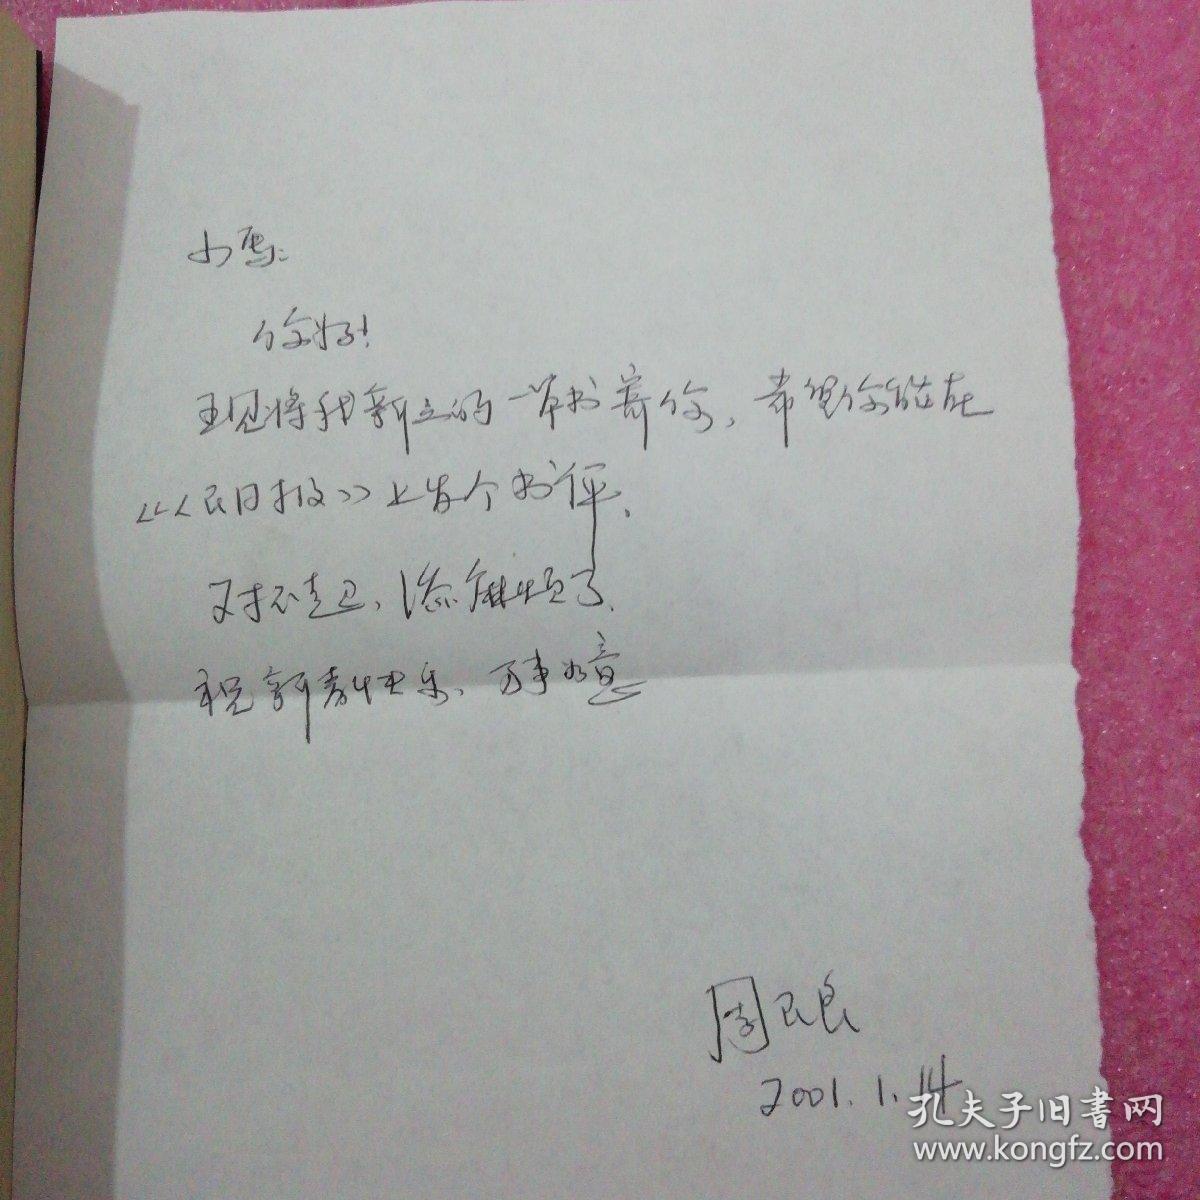 小马：
你好！
现将我新立的一本书寄你，希望你能在
《人民日报》上发个书评，
对不起，添麻烦了，
祝新春快乐，万事如意
周民良
2001.1.14
孔夫子旧書网
www.kongfz.com